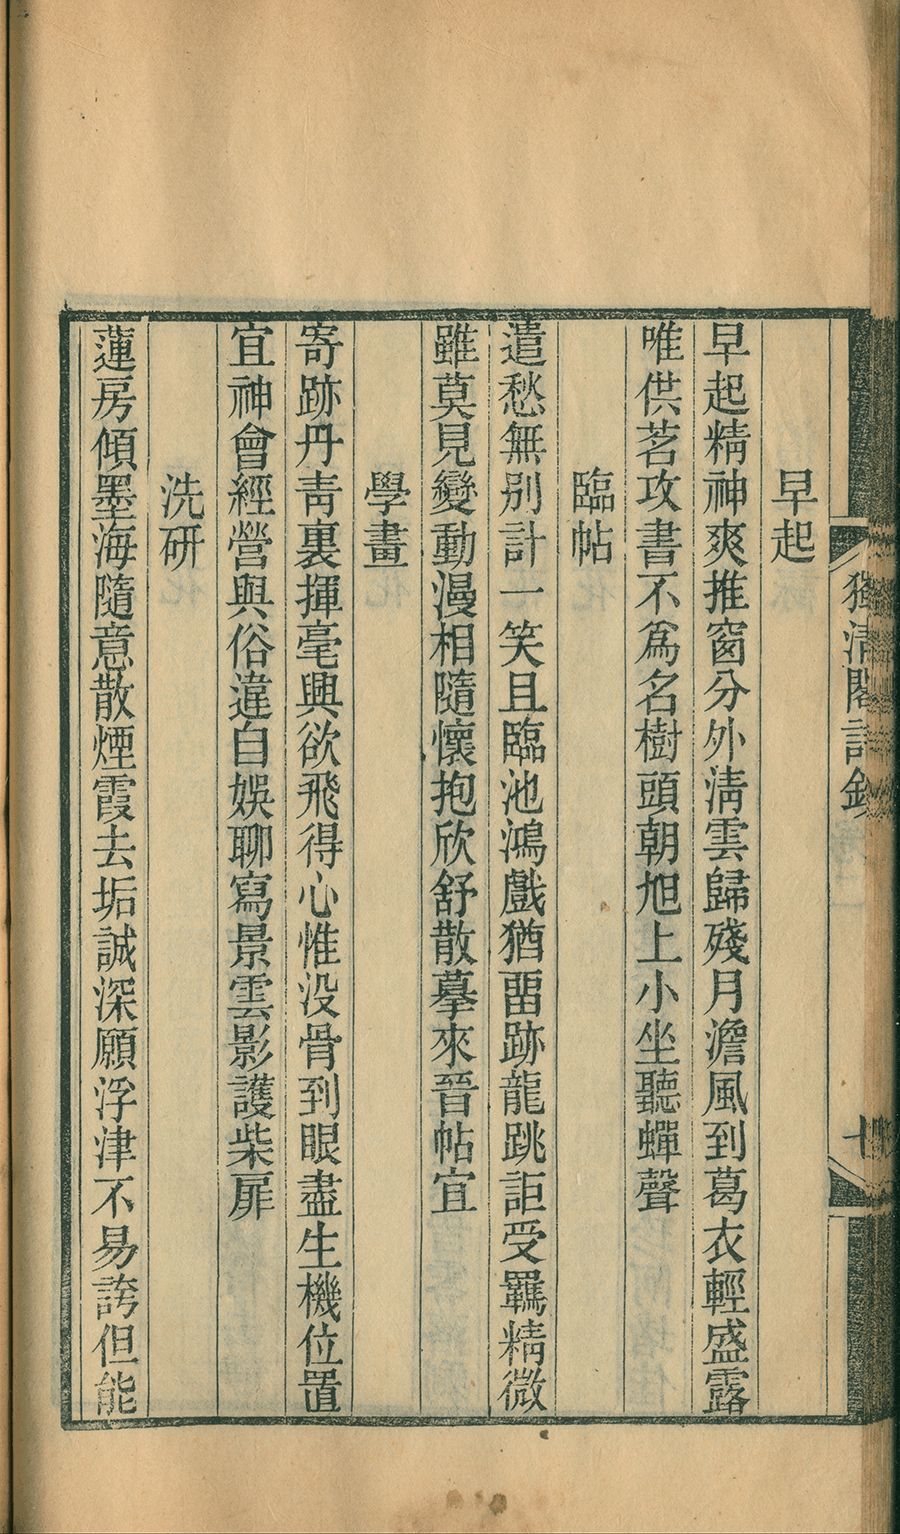 早起
早起精神爽推窗分外淸雲歸殘月澹風到葛衣輕盛露
唯供茗攻書不爲名樹頭朝旭上小坐聽蟬聲
臨帖
遣愁無別計一笑且臨池鴻戲猶畱跡龍跳詎受羈精微
雖莫見變動漫相隨懷抱欣舒散摹來晉帖宜
學畫
寄跡丹靑裏揮毫興欲飛得心惟没骨到眼盡生機位置
宜神會經營與俗違自娛聊寫景雲影護柴扉
洗研
蓮房傾墨海隨意散煙霞去垢誠深願浮津不易誇但能